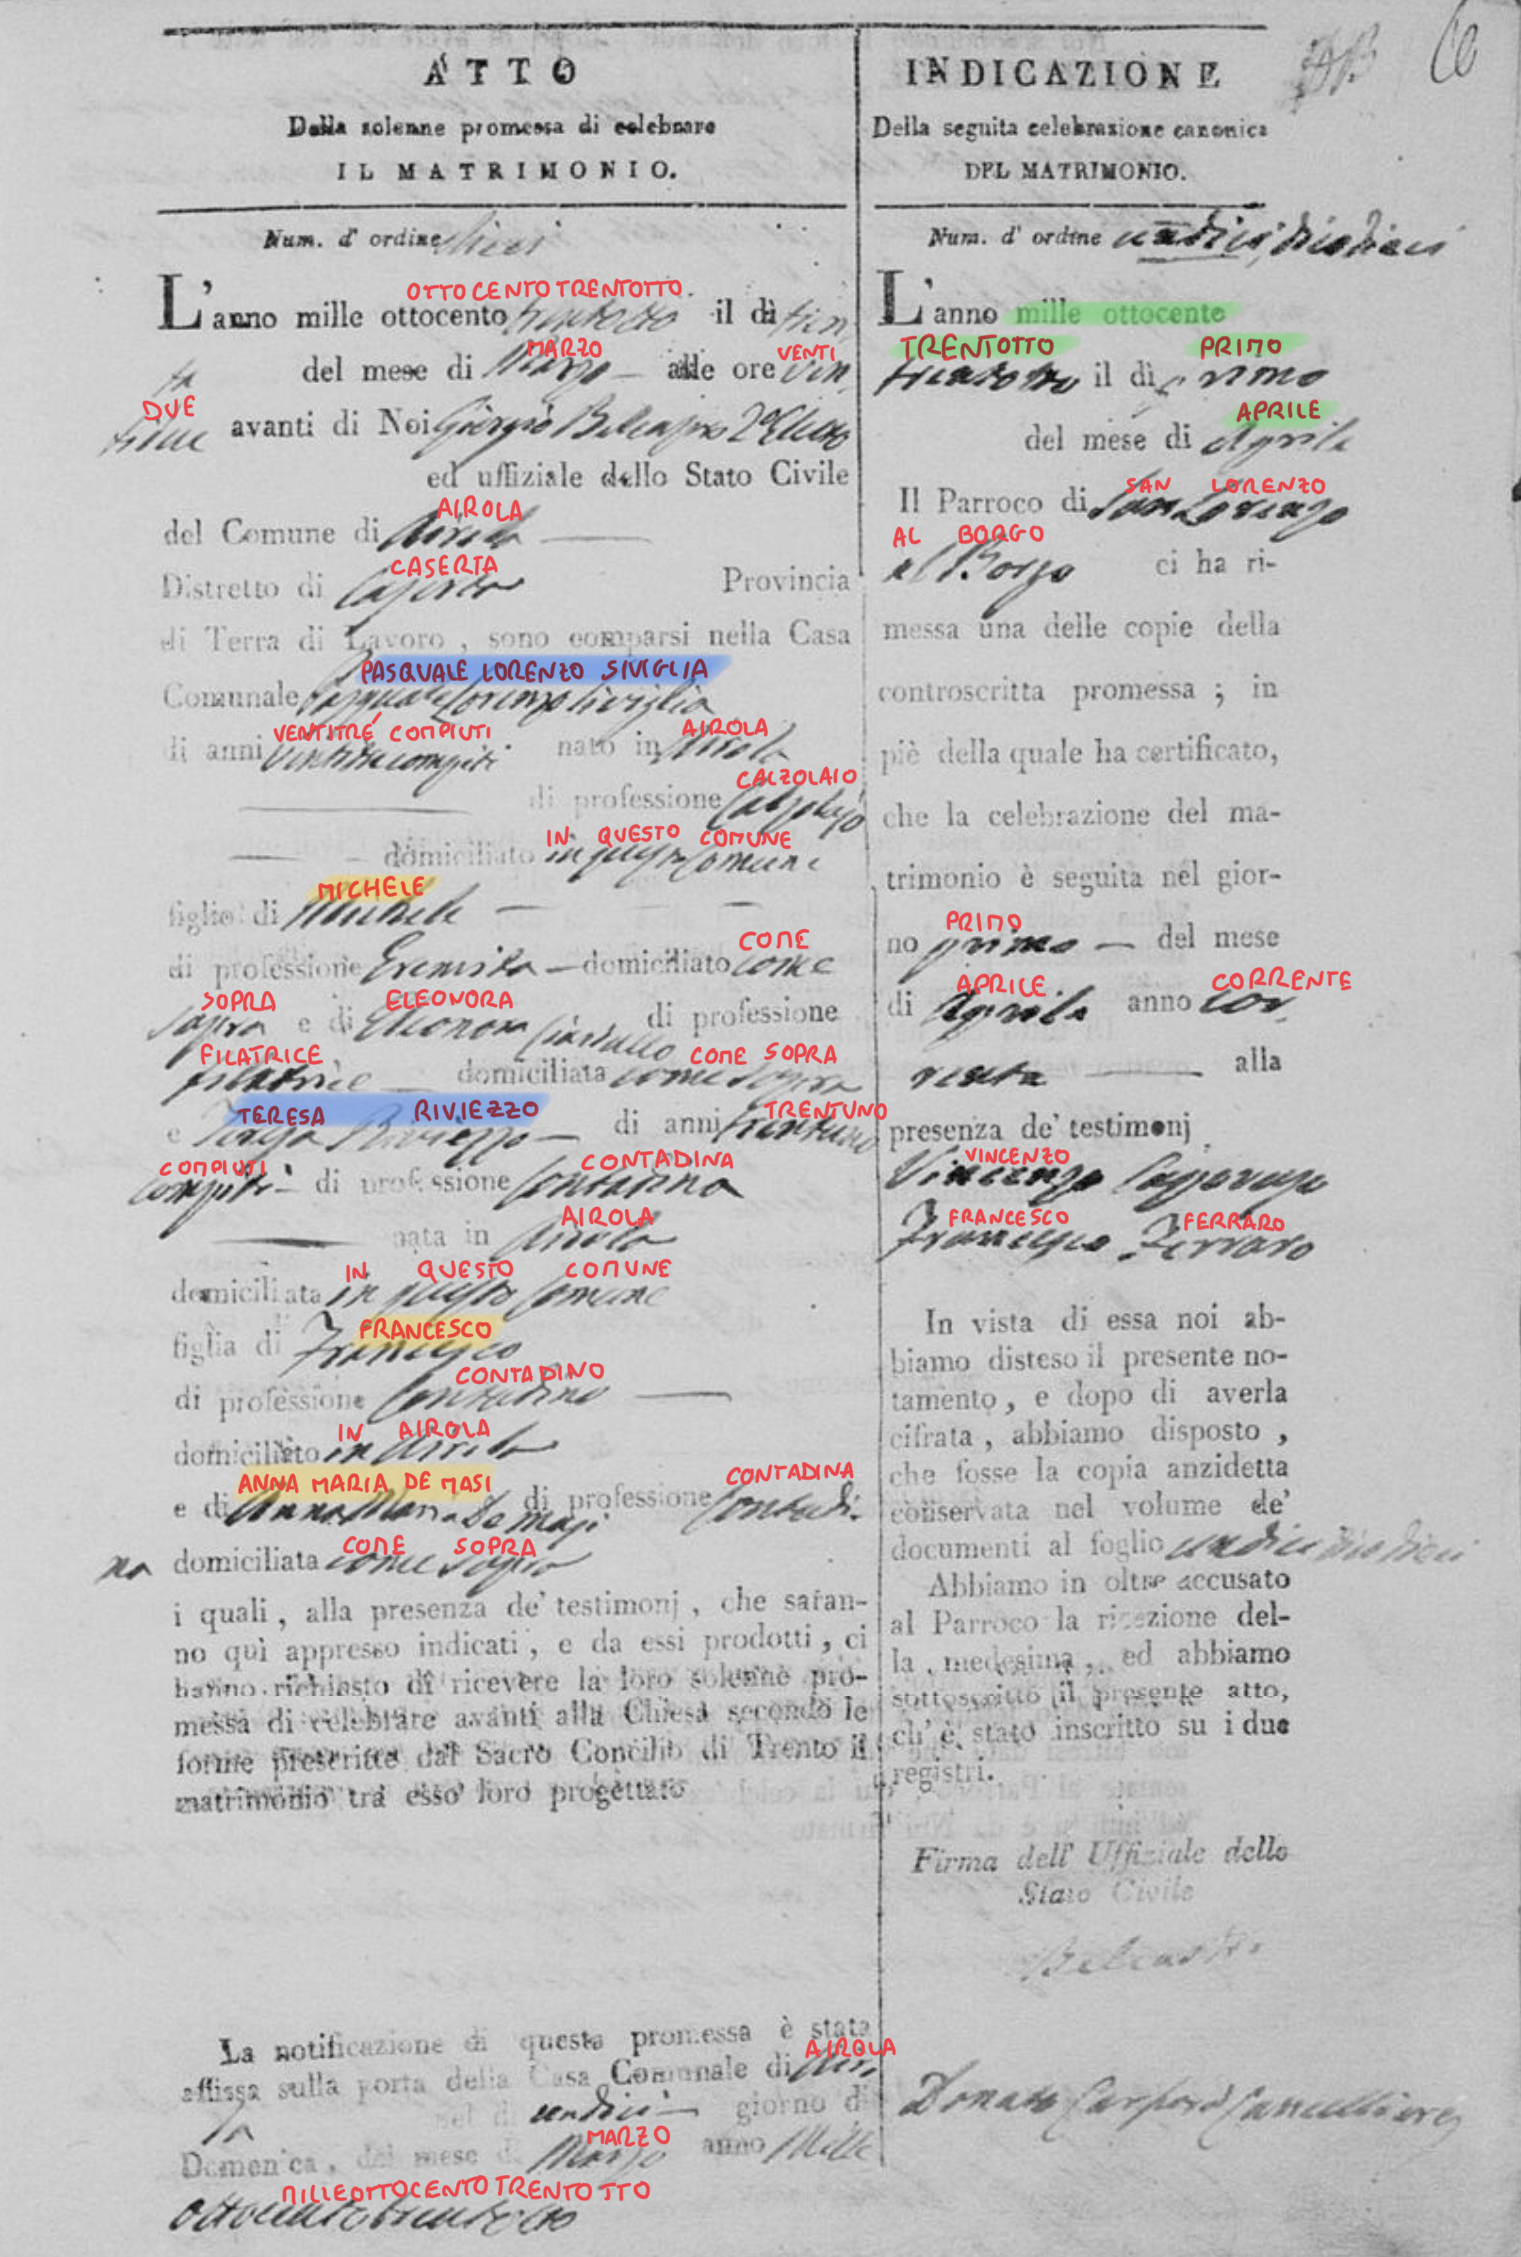 ATTO
Della solenne promessa di celebrare
IL MATRIMONIO.
Num. d' ordine
OTTOCENTO TRENTOTTO.
L'anno mille ottocento trentotto il dì tren
MARZO VENTI
ta del mese di Marzo alle ore ven
DUE
tidue avanti di Noi Giorgio 2º Eletto
ed uffiziale dello Stato Civile
AIROLA
del Comune di Airola
CASERTA
Distretto di Caserta Provincia
di Terra di Lavoro, sono comparsi nella Casa
PASQUALE LORENZO SIVIGLIA
Comunale Pasquale Lorenzo Siviglia
VENTITRÉ COMPIUTI AIROLA
di anni ventitre compiti nato in Airola
CALZOLAIO
di professione Calzolajo
IN QUESTO COMUNE
domiciliato in questo Comune
MICHELE
figlio di Michele
COME
di professione Eremita domiciliato come
SOPRA ELEONORA
sopra e di Eleonora Ciardullo di professione
FILATRICE COME SOPRA
filatrice domiciliata come sopra
TERESA RIVIEZZO TRENTUNO
e Teresa Riviezzo di anni trentuno
COMPIUTI CONTADINA
compiti di professione Contadina
AIROLA
nata in Airola
IN QUESTO COMUNE
domiciliata in questo Comune
FRANCESCO
figlia di Francesco
CONTADINO
di professione Contadino
IN AIROLA
domiciliato in Airola
ANNA MARIA DE MASI CONTADINA
e di Anna Maria De Masi di professione Contadi-
COME SOPRA
na domiciliata come sopra
i quali, alla presenza de' testimonj, che saran-
no quì appresso indicati, e da essi prodotti, ci
hanno richiesto di ricevere la loro solenne pro-
messa di celebrare avanti alla Chiesa secondo le
forme prescritte dal Sacro Concilio di Trento il
matrimonio tra esso loro progettato
La notificazione di questa promessa è stata
AIROLA
affissa sulla porta della Casa Comunale di Airo
la nel dì undici giorno di
MARZO
Domenica, del mese di Marzo anno Mille
MILLEOTTOCENTO TRENTOTTO
ottocento trentotto
INDICAZIONE
Della seguita celebrazione canonica
DEL MATRIMONIO.
Num. d' ordine undici
L'anno mille ottocento
TRENTOTTO PRIMO
trentotto il dì primo
APRILE
del mese di Aprile
SAN LORENZO
Il Parroco di San Lorenzo
AL BORGO
al Borgo ci ha ri-
messa una delle copie della
controscritta promessa; in
piè della quale ha certificato,
che la celebrazione del ma-
trimonio è seguita nel gior-
PRIMO
no primo del mese
APRILE CORRENTE
di Aprile anno cor-
rente alla
presenza de' testimonj
VINCENZO
Vincenzo
FRANCESCO FERRARO
Francesco Ferraro
In vista di essa noi ab-
biamo disteso il presente no-
tamento, e dopo di averla
cifrata, abbiamo disposto,
che fosse la copia anzidetta
conservata nel volume de'
documenti al foglio undici
Abbiamo in oltre accusato
al Parroco la ricezione del-
la medesima, ed abbiamo
sottoscritto il presente atto,
ch' è stato inscritto su i due
registri.
Firma dell' Uffiziale dello
Stato Civile
Donato Cancelliere